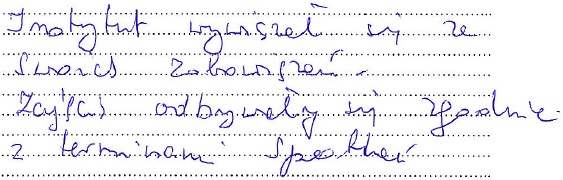 Instytut wywiązał się ze
swoich zobowiązań.
Zajęcia odbywały się zgodnie
z terminami spotkań